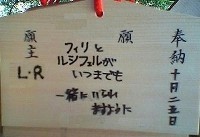 奉納 十月二五日
願
フィリと
ルシフェルが
いつまでも
一緒にいられ
ますように
願主
L・R